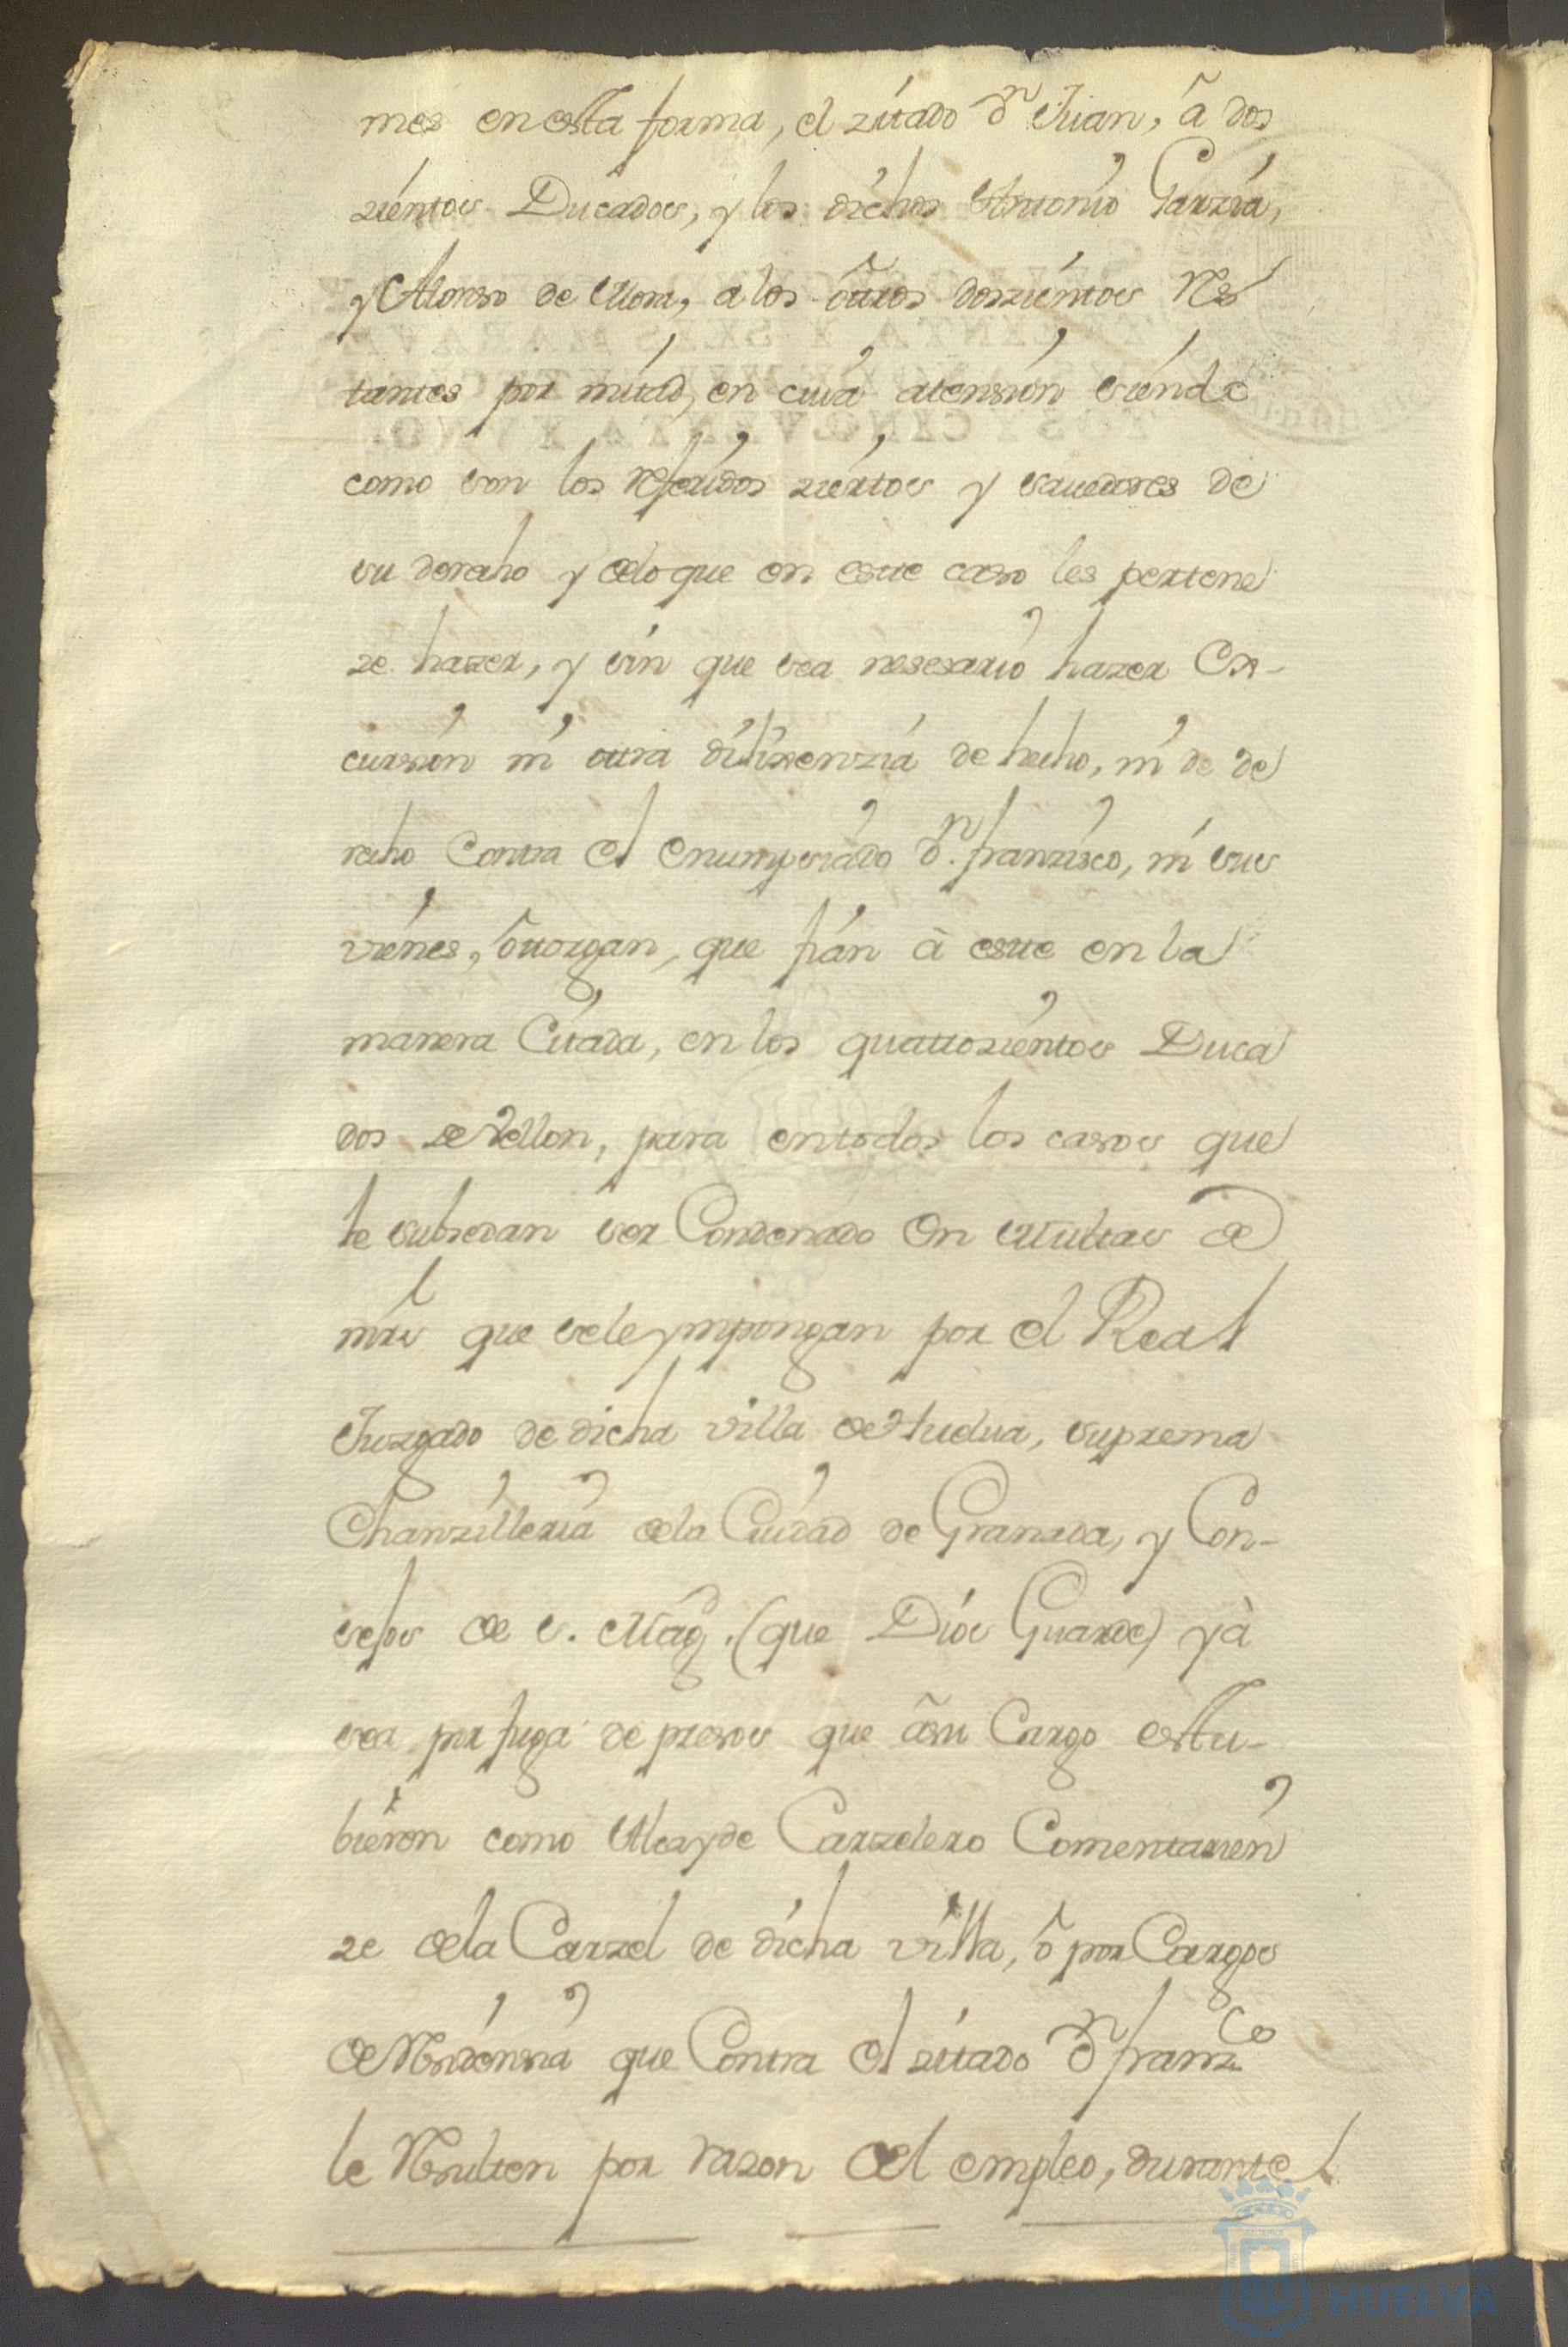 mes en esta forma, el zitado Dn Juan, â dos
zientos Ducados, y los dichos Antonio Garzia,
y Alonso de Mora, a los ôttros doszientos Res
tantes por mitad, en cuia atension siendo
como son los Referidos ziertos y savedores de
su derecho y delo que en este caso les pertene
ze hazer, y sin que sea nesesario hazer Ex-
cursion ni otra dilixenzia de hecho, ni de de
recho Contra el Enunpsiado Dn. franzisco, ni sus
vienes, ôtorgan, que fian à este en la
manera Citada, en los quattrozientos Duca
dos de Vellon, para en todos los casos que
le subsedan ser Condenado En Multas de
mrs que se le ympongan por el Real
Juzgado de dicha villa de Huelva, suprema
Chanzilleria dela Ciudad de Granada, y Con-
sejos de S. Magd. (que Dios Guarde) yà
sea por fuga de presos que âsu Cargo estu-
bieron como Alcayde Carzelero Comentarien
ze dela Carzel de dicha villa, ô por Cargos
de Residensia que Contra el zitado Dn franzco
le Resulten por razon del empleo, durante
HUELVA